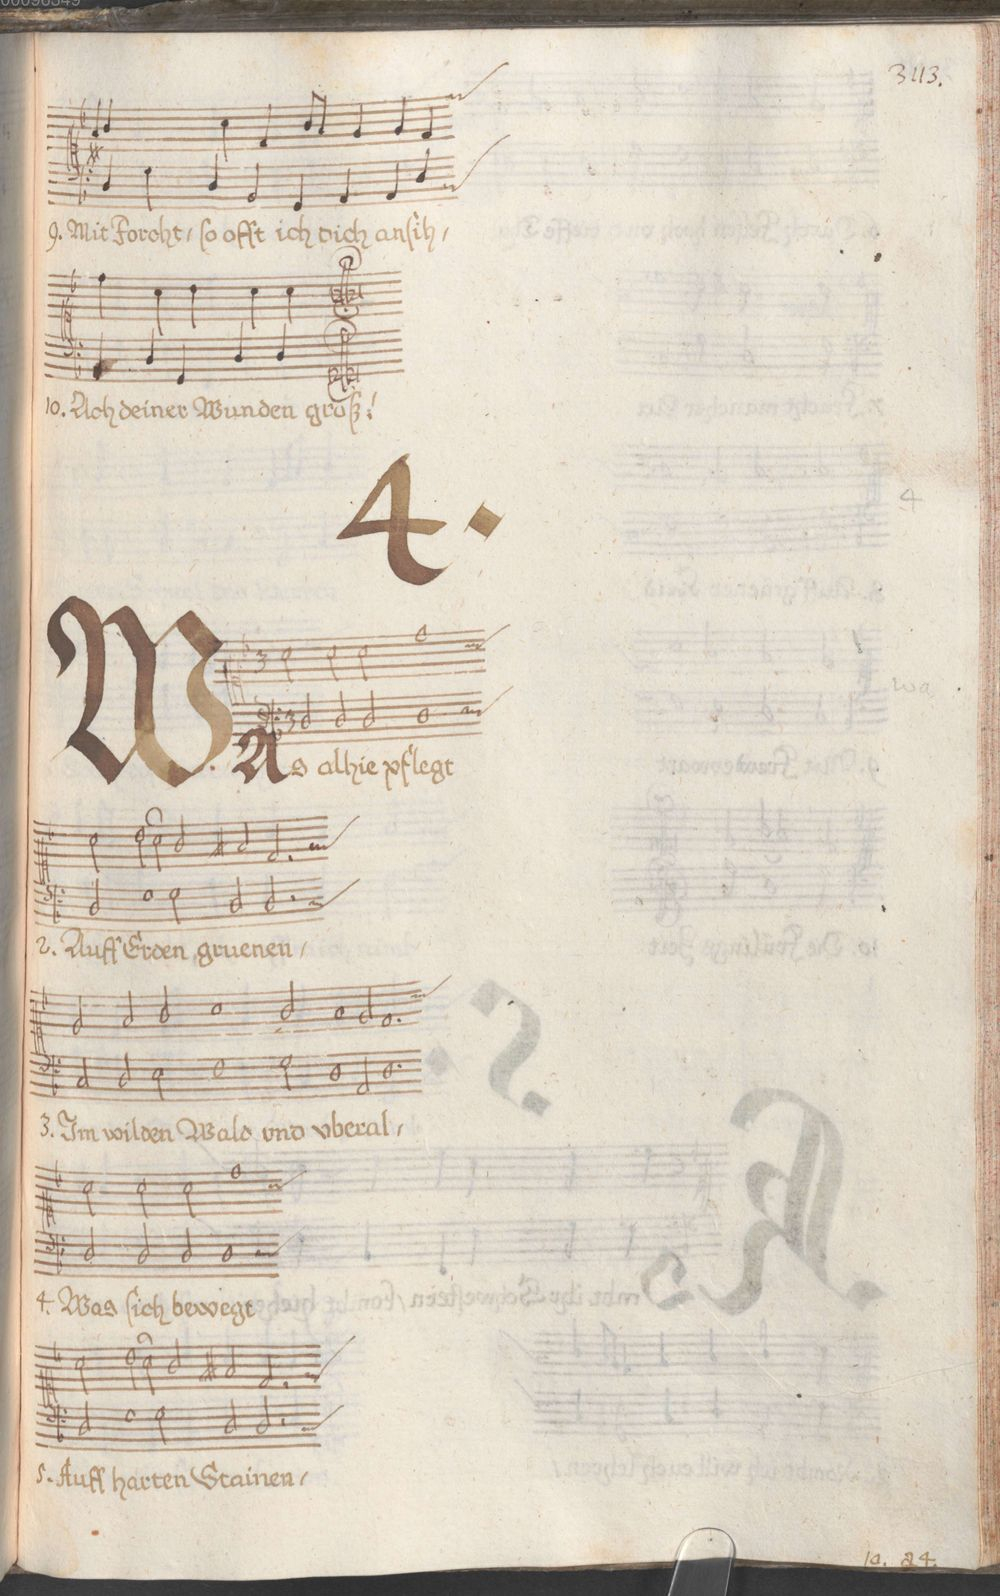 343.
9. Mit Forcht, so offt ich dich ansih,
10. Ach deiner Wunden groß!
4.
4
WAs alhie pflegt
2. Auff Erden gruenen,
3. Im wilden Wald vnd vberal,
4. Was sich bewegt
5. Auff harten Stainen,